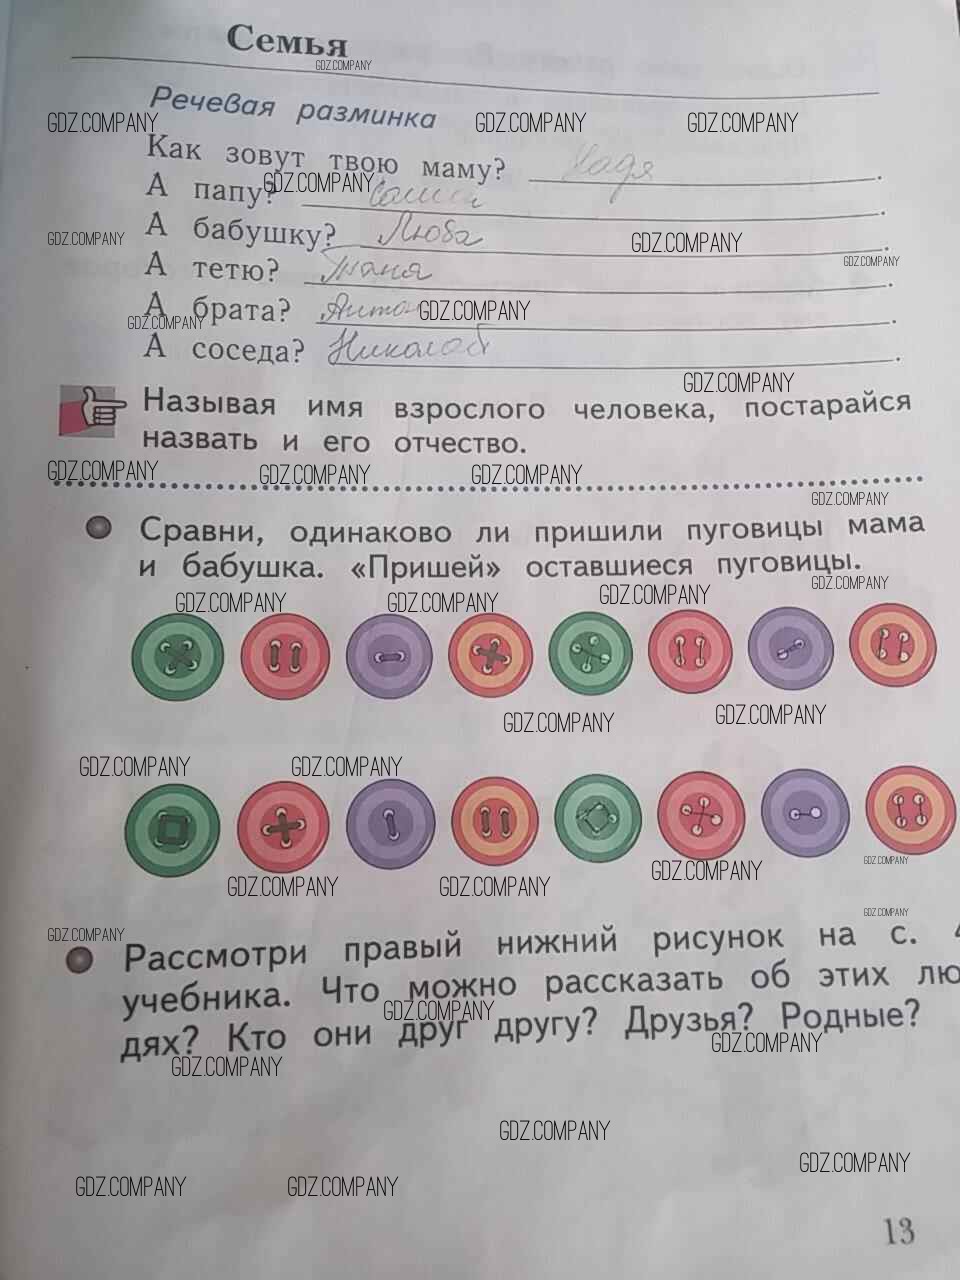 Семья
GDZ.COMPANY
Речевая разминка
GDZ.COMPANY GDZ.COMPANY GDZ.COMPANY
Как зовут твою маму? Надя.
GDZ.COMPANY
А папу? Саша.
А бабушку? Люба.
GDZ.COMPANY GDZ.COMPANY
GDZ.COMPANY
А тетю? Таня.
А брата? Антон.
GDZ.COMPANY GDZ.COMPANY
А соседа? Николай.
GDZ.COMPANY
Называя имя взрослого человека, постарайся
назвать и его отчество.
GDZ.COMPANY GDZ.COMPANY GDZ.COMPANY
GDZ.COMPANY
Сравни, одинаково ли пришили пуговицы мама
и бабушка. «Пришей» оставшиеся пуговицы.
GDZ.COMPANY
GDZ.COMPANY GDZ.COMPANY GDZ.COMPANY
GDZ.COMPANY GDZ.COMPANY
GDZ.COMPANY GDZ.COMPANY
GDZ.COMPANY
GDZ.COMPANY GDZ.COMPANY GDZ.COMPANY
GDZ.COMPANY
GDZ.COMPANY
Рассмотри правый нижний рисунок на с. 4
учебника. Что можно рассказать об этих лю
GDZ.COMPANY
дях? Кто они друг другу? Друзья? Родные?
GDZ.COMPANY
GDZ.COMPANY
GDZ.COMPANY
GDZ.COMPANY
GDZ.COMPANY GDZ.COMPANY
13